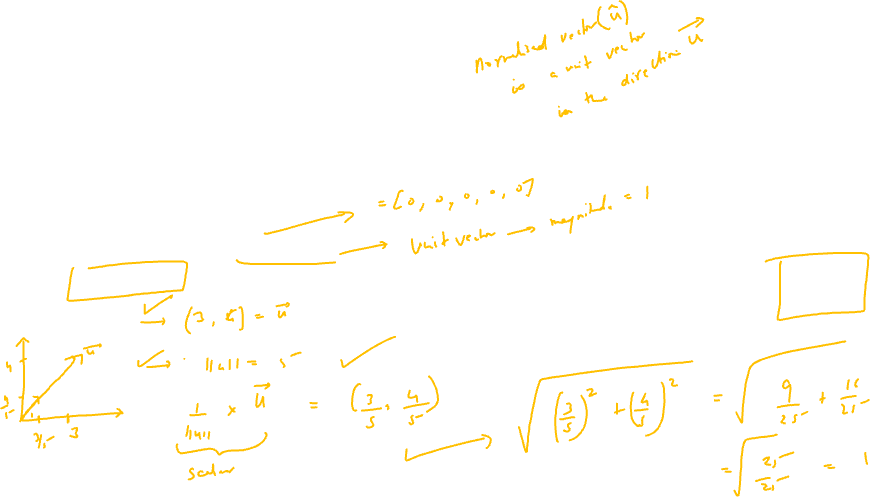 Normalised vector (û)
is a unit vector
in the direction u⃗
= [0, 0, 0, 0, 0]
Unit vector → magnitude = 1
→ (3, 4] = u⃗
→ · ||u|| = 5
u⃗
4
4/5
3/5 3
1/||u|| × u⃗ = (3/5, 4/5)
scalar
√((3/5)² + (4/5)²) = √(9/25 + 16/25)
= √(25/25) = 1